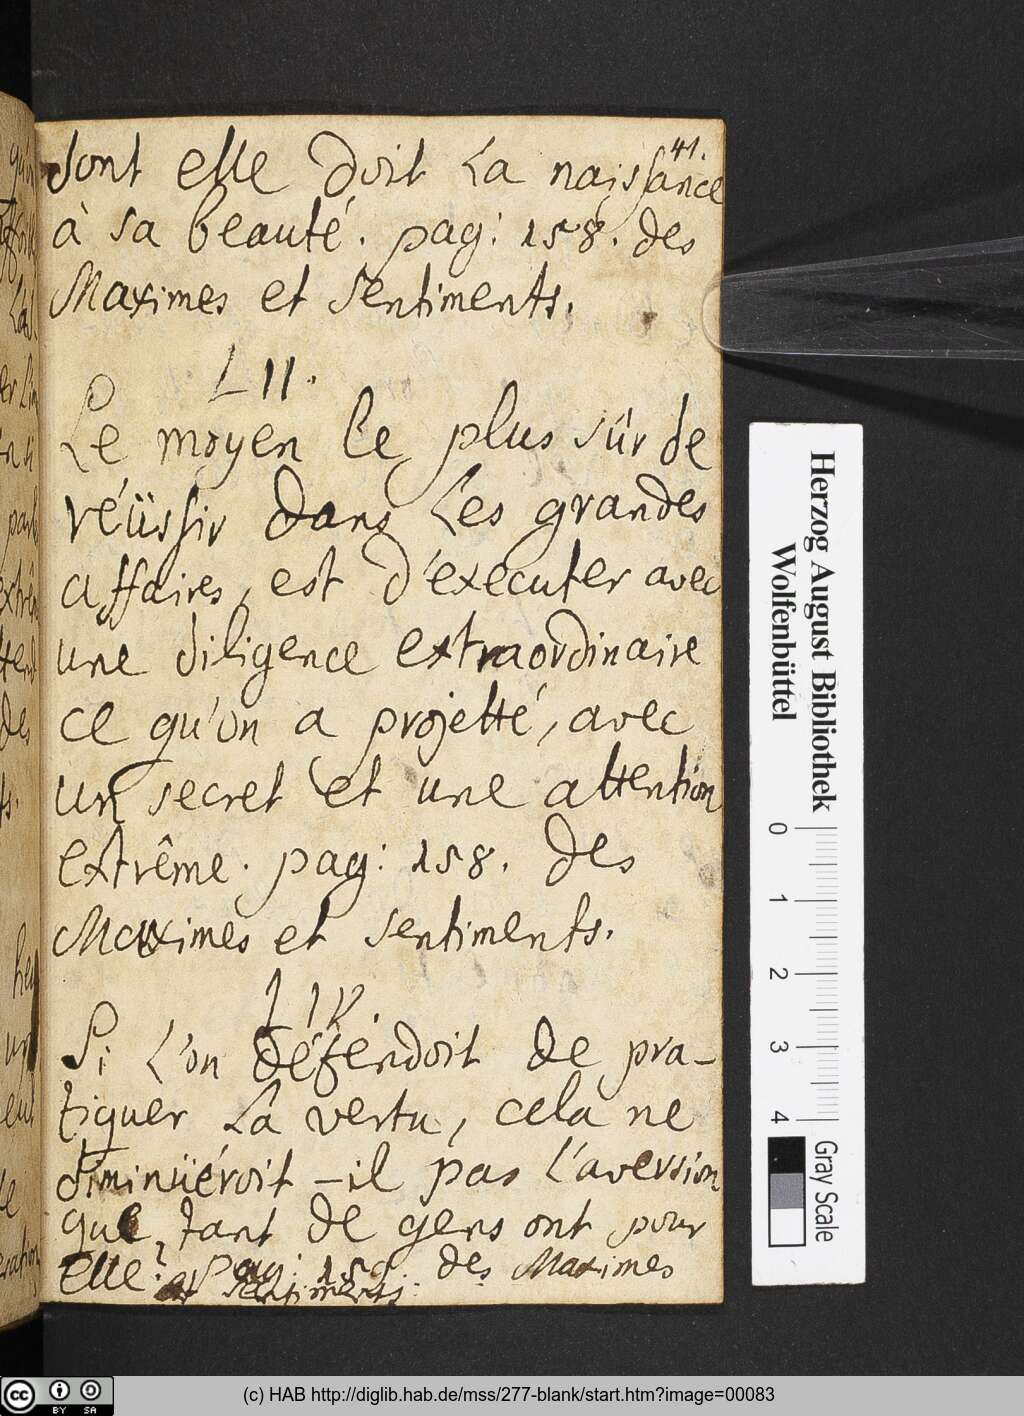 41.
dont elle doit la naissance
à sa beauté. pag: 158. des
Maximes et sentiments.
LII.
Le moyen le plus sûr de
réüssir dans les grandes
affaires, est d'executer avec
une diligence extraordinaire
ce qu'on a projetté, avec
un secret et une attention
extrême. pag: 158. des
Maximes et sentiments.
LIV.
Si l'on défendoit de pra-
tiquer la vertu, cela ne
diminüeroit-il pas l'aversion
que tant de gens ont pour
elle? pag: des Maximes
et sentiments.
Herzog August Bibliothek
Wolfenbüttel
0 1 2 3 4
Gray Scale
cc BY SA
(c) HAB http://diglib.hab.de/mss/277-blank/start.htm?image=00083